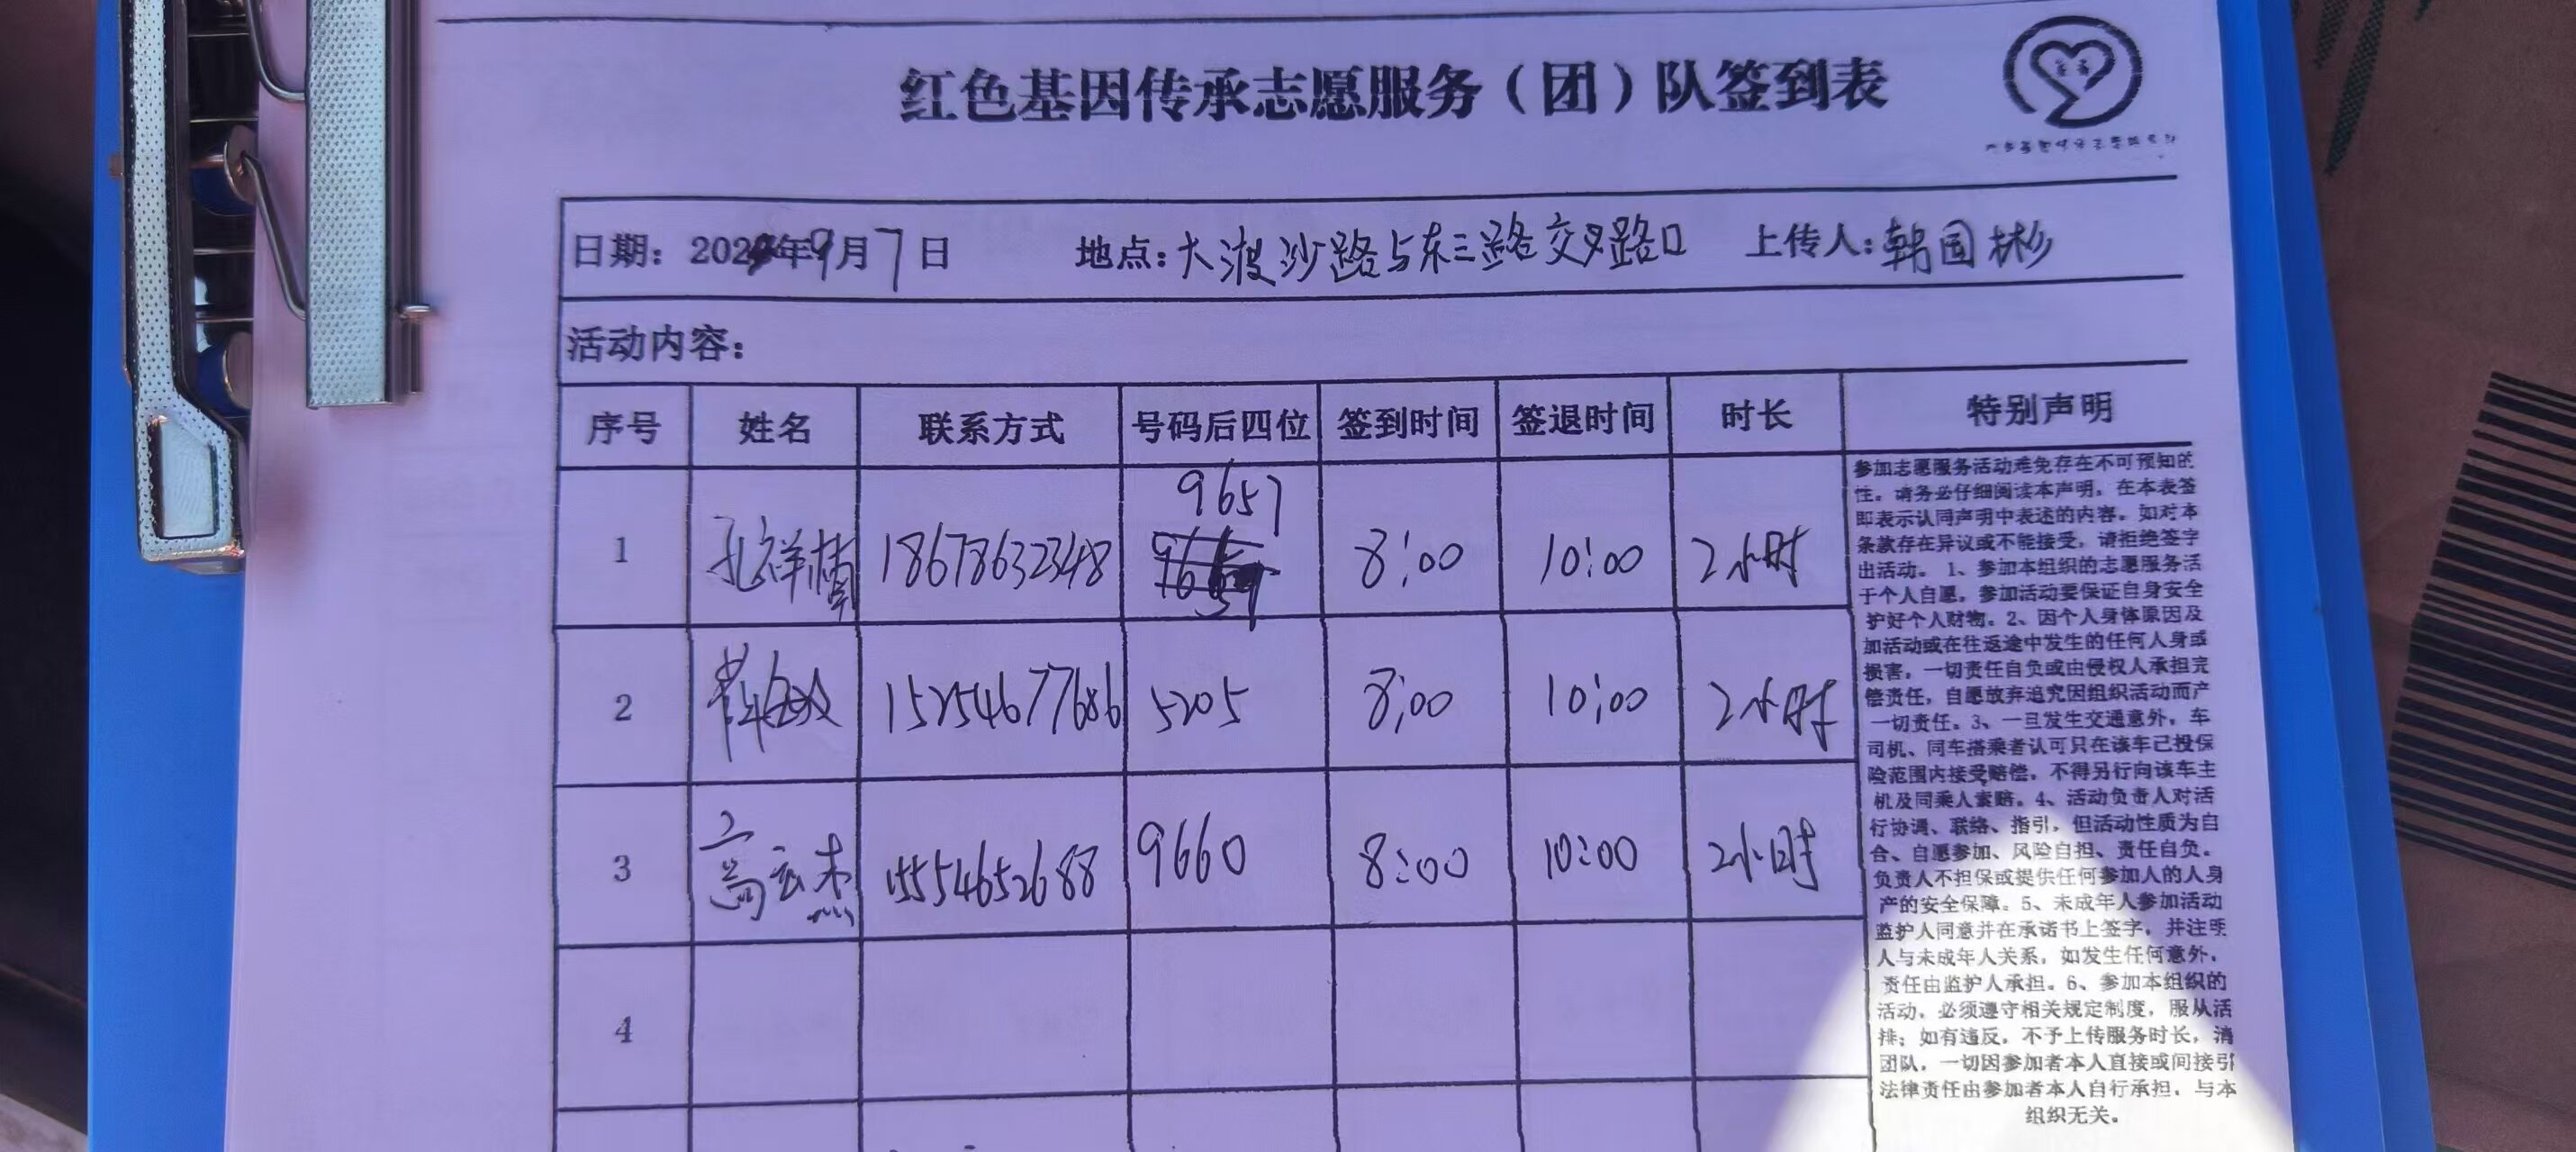 红色基因传承志愿服务（团）队签到表
日期：202 年9月7日 地点：大渡沙路与东三路交叉路口 上传人：韩国彬
活动内容：
序号 姓名 联系方式 号码后四位 签到时间 签退时间 时长 特别声明
1 孔祥 18678632348 9657 8:00 10:00 2小时
2 敏 15254677686 5205 8:00 10:00 2小时
3 高云杰 15554652688 9660 8:00 10:00 2小时
4
参加志愿服务活动难免存在不可预知的
性。请务必仔细阅读本声明，在本表签
即表示认同声明中表述的内容。如对本
条款存在异议或不能接受，请拒绝签字
出活动。1、参加本组织的志愿服务活
于个人自愿，参加活动要保证自身安全
护好个人财物。2、因个人身体原因及
加活动或在往返途中发生的任何人身或
损害，一切责任自负或由侵权人承担完
偿责任，自愿放弃追究因组织活动而产
一切责任。3、一旦发生交通意外，车
司机、同车搭乘者认可只在该车已投保
险范围内接受赔偿，不得另行向该车主
机及同乘人索赔。4、活动负责人对活
行协调、联络、指引，但活动性质为自
合、自愿参加、风险自担、责任自负。
负责人不担保或提供任何参加人的人身
产的安全保障。5、未成年人参加活动
监护人同意并在承诺书上签字，并注明
人与未成年人关系，如发生任何意外，
责任由监护人承担。6、参加本组织的
活动，必须遵守相关规定制度，服从活
排；如有违反，不予上传服务时长，清
团队，一切因参加者本人直接或间接引
法律责任由参加者本人自行承担，与本
组织无关。